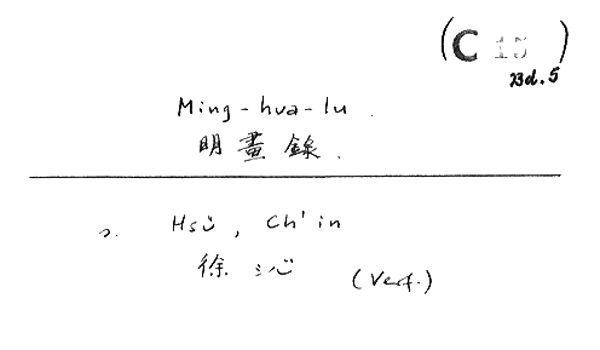 (C 15)
Bd. 5
Ming-hua-lu.
明畫錄.
2. Hsü, Ch'in
徐沁 (Verf.)